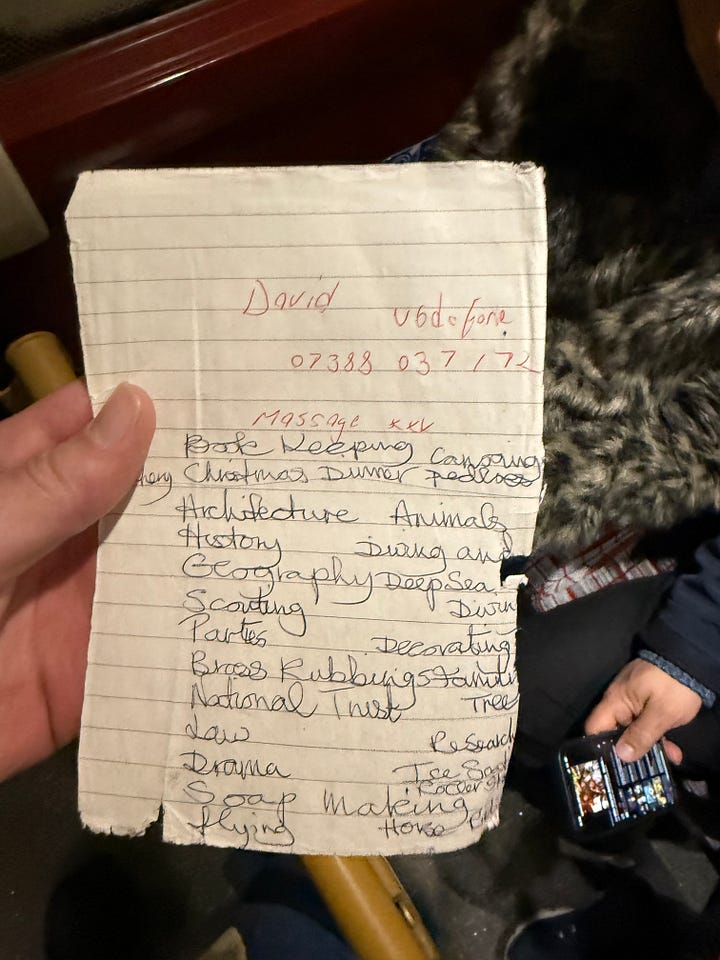 David
Vodafone
07388 037172
Massage xxv
Book Keeping Canoeing
Christmas Dinner
Architecture Animals
History Diving and
Geography Deep Sea
Scouting Divin
Parties Decorating
Brass Rubbings Family
National Trust Tree
Law Research
Drama Ice
Soap Making
flying Horse